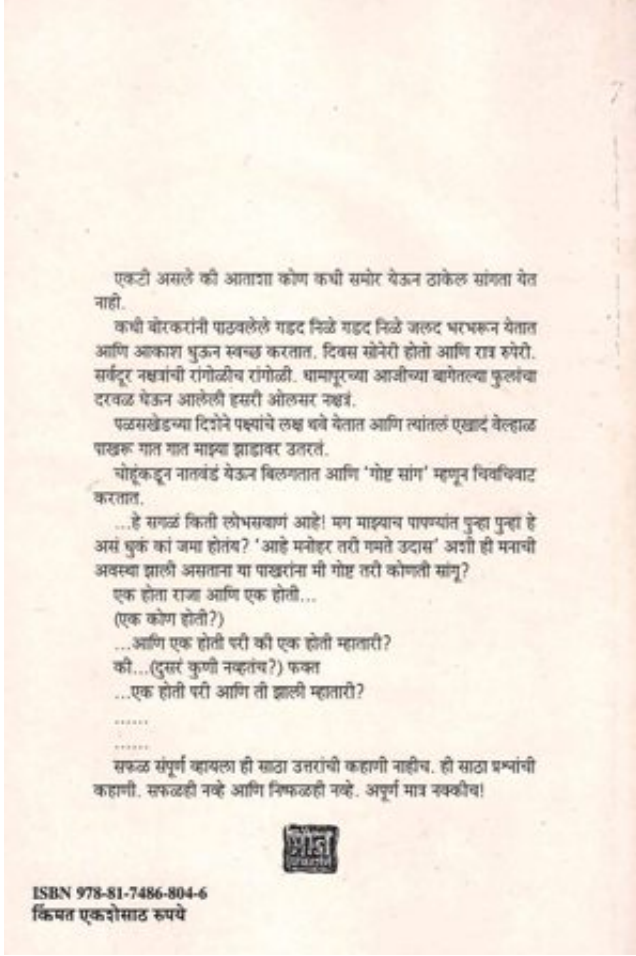 एकटी असले की आताशा कोण कधी समोर येऊन ठाकेल सांगता येत
नाही.
कधी बोरकरांनी पाठवलेले गडद निळे गडद निळे जलद भरभरून येतात
आणि आकाश धुऊन स्वच्छ करतात. दिवस सोनेरी होतो आणि रात्र रुपेरी.
सर्वदूर नक्षत्रांची रांगोळीच रांगोळी. धामापूरच्या आजीच्या बागेतल्या फुलांचा
दरवळ घेऊन आलेली हसरी ओलसर नक्षत्रं.
पळसखेडच्या दिशेने पक्ष्यांचे लक्ष थवे येतात आणि त्यांतलं एखादं वेल्हाळ
पाखरू गात गात माझ्या झाडावर उतरतं.
चोहूंकडून नातवंडं येऊन बिलगतात आणि 'गोष्ट सांग' म्हणून चिवचिवाट
करतात.
...हे सगळं किती लोभसवाणं आहे! मग माझ्याच पापण्यांत पुन्हा पुन्हा हे
असं धुकं कां जमा होतंय? 'आहे मनोहर तरी गमते उदास' अशी ही मनाची
अवस्था झाली असताना या पाखरांना मी गोष्ट तरी कोणती सांगू?
एक होता राजा आणि एक होती...
(एक कोण होती?)
...आणि एक होती परी की एक होती म्हातारी?
की...(दुसरं कुणी नव्हतंच?) फक्त
...एक होती परी आणि ती झाली म्हातारी?
......
......
सफळ संपूर्ण व्हायला ही साठा उत्तरांची कहाणी नाहीच. ही साठा प्रश्नांची
कहाणी. सफळही नव्हे आणि निष्फळही नव्हे. अपूर्ण मात्र नक्कीच!
मौज
प्रकाशन
ISBN 978-81-7486-804-6
किंमत एकशेसाठ रुपये